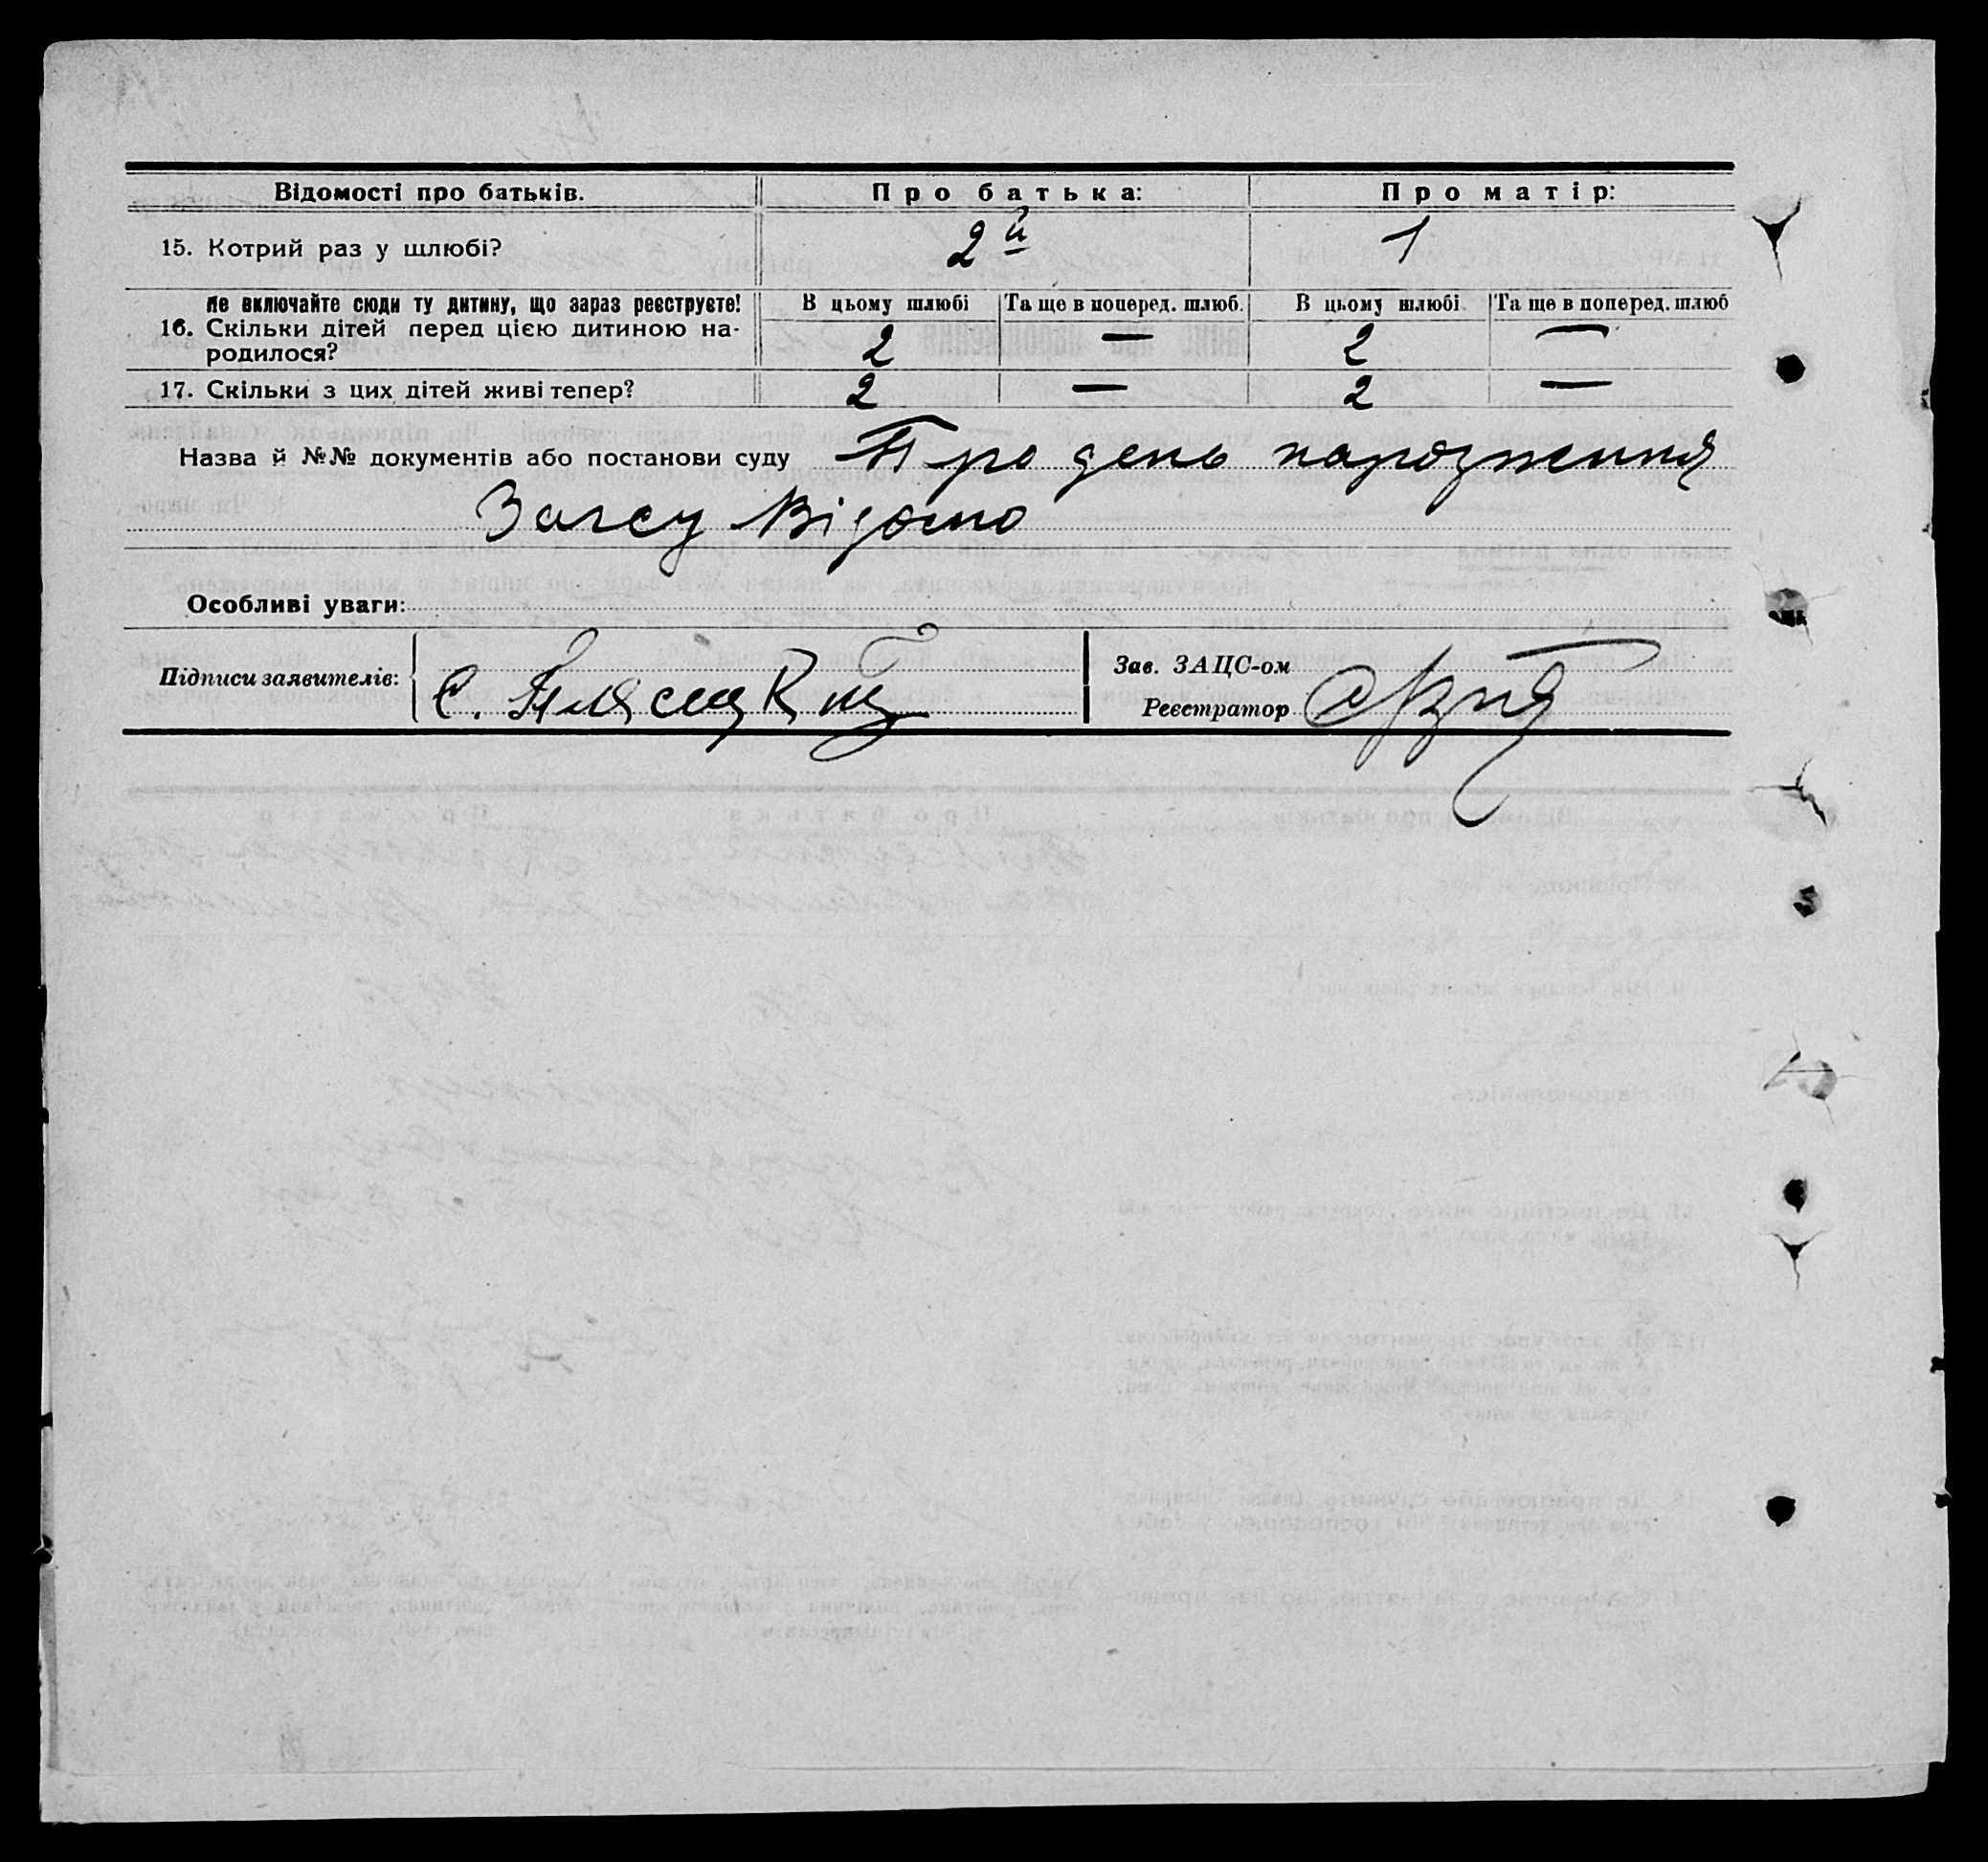 Відомості про батьків. Про батька: Про матір:
15. Котрий раз у шлюбі? 2й 1
Не включайте сюди ту дитину, що зараз реєструєте! В цьому шлюбі Та ще в поперед. шлюб. В цьому шлюбі Та ще в поперед. шлюб
16. Скільки дітей перед цією дитиною на-
родилося? 2 — 2 —
17. Скільки з цих дітей живі тепер? 2 — 2 —
Назва й №№ документів або постанови суду Про день народження
Загсу Відомо
Особливі уваги:
Підписи заявителів: С. Зав. ЗАЦС-ом
Реєстратор